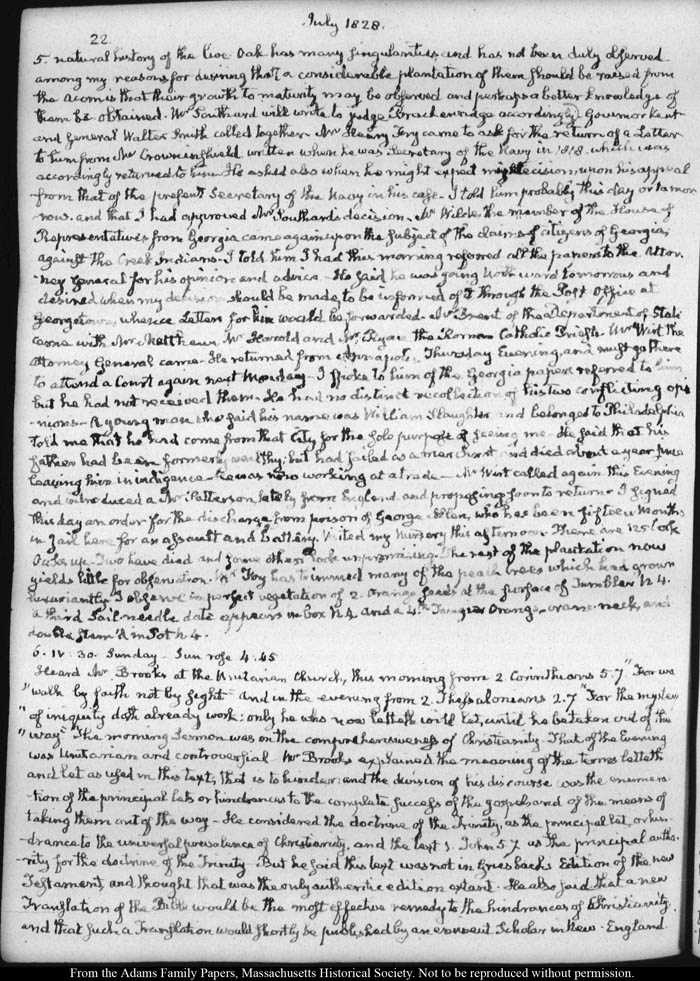 July 1828.
22.
5. natural history of the live Oak has many singularities and has not been duly observed.
among my reasons for desiring that a considerable plantation of them should be raised from
the acorn is that their growth to maturity may be observed and perhaps a better knowledge of
them be obtained. Mr Southard will write to judge Brackenridge accordingly. Governor Kent
and General Walter Smith called together. Mr Henry Fry came to ask for the return of a Letter
to him from Mr Crowninshield written when he was Secretary of the Navy in 1818. which was
accordingly returned to him. He asked also when he might expect my decision upon his appeal
from that of the present Secretary of the Navy in his case. I told him probably this day or tomor
row. and that I had approved Mr Southard's decision. Mr Wilde, the member of the House of
Representatives from Georgia came again upon the subject of the claims of citizens of Georgia,
against the Creek Indians. I told him I had this morning referred all the papers to the Attor.
ney General for his opinion and advice. He said he was going Northward tomorrow and
desired when my decision should be made, to be informed of it through the Post Office at
Georgetown, whence Letters for him would be forwarded. Mr Brent of the Department of State
came with Mr Matthews Mr Harold and Mr Ryan the Roman Catholic Priests. Mr Wirt the
Attorney General came. He returned from Annapolis Thursday Evening, and must go there
to attend a Court again next Monday. I spoke to him of the Georgia papers referred to him
but he had not received them. He had no distinct recollection of his two conflicting opi
nions. A young man who said his name was William Slaughter and belonged to Philadelphia
told me that he had come from that City for the sole purpose of seeing me. He said that his
father had been formerly wealthy; but had failed as a merchant and died about a year since
leaving him in indigence. He was now working at a trade. Mr Wirt called again this Evening
and introduced a Mr Patterson, lately from England, and proposing soon to return. I signed
this day an order for the discharge from prison of George Allen, who has been fifteen months
in jail here for an assault and battery. Visited my Nursery this afternoon. There are 125
Oaks up. Two have died and some others look unpromising. The rest of the plantation now
yields little for observation. Mr Foy has trimmed many of the peach trees which had grown
luxuriantly. I observe imperfect vegetation of 2 Orange seeds at the surface of Tumbler N 4.
a third date appears in box N 4 and a 4th Tangier Orange, and
double in Pot N 4.
6. IV: 30. Sunday. Sun rose 4:45
Heard Mr Brooks at the Unitarian Church, this morning from 2 Corinthians 5.7 "For we
"walk by faith not by sight" and in the evening from 2. Thessalonians 2.7 "For the mystery
"of iniquity doth already work: only he who now letteth will let, until he be taken out of the
"way" The morning Sermon was on the comprehensiveness of Christianity. That of the Evening
was Unitarian and controversial. Mr Brooks explained the meaning of the terms letteth
and let as used in this text, that is to hinder: and the division of his discourse was the enumera
tion of the principal lets or hindrances to the complete success of the gospel and of the means of
taking them out of the way. He considered the doctrine of the Trinity, as the principal let, or hin
drance to the universal prevalence of Christianity, and the text 1. John 5.7 as the principal autho.
rity for the doctrine of the Trinity. But he said this text was not in Griesbach's Edition of the new
Testament, and thought that was the only authentic edition extant. He also said that a new
Translation of the Bible would be the most effective remedy to the hindrances of Christianity
and that such a Translation would shortly be published by an eminent Scholar in New-England.
From the Adams Family Papers, Massachusetts Historical Society. Not to be reproduced without permission.